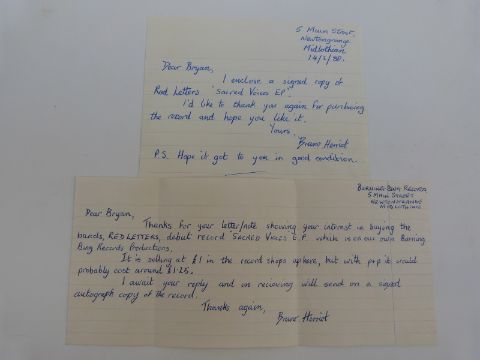 5 Main Street,
Newtongrange
Midlothian
14/2/88.
Dear Bryan,
I enclose a signed copy of
Red Letters 'Sacred Voices EP'.
I'd like to thank you again for purchasing
the record and hope you like it.
Yours,
Bruno Herriot
P.S. Hope it got to you in good condition.
Burning Bing Records
5 Main Street
Newtongrange
Midlothian
Dear Bryan,
Thanks for your letter/note showing your interest in buying the
bands, RED LETTERS, debut record SACRED VOICES E.P. which is on our own Burning
Bing Records Productions.
It is selling at £1 in the record shops up here, but with p+p it would
probably cost around £1.25.
I await your reply and on recieving will send on a signed
autograph copy of the record.
Thanks again,
Bruno Herriot